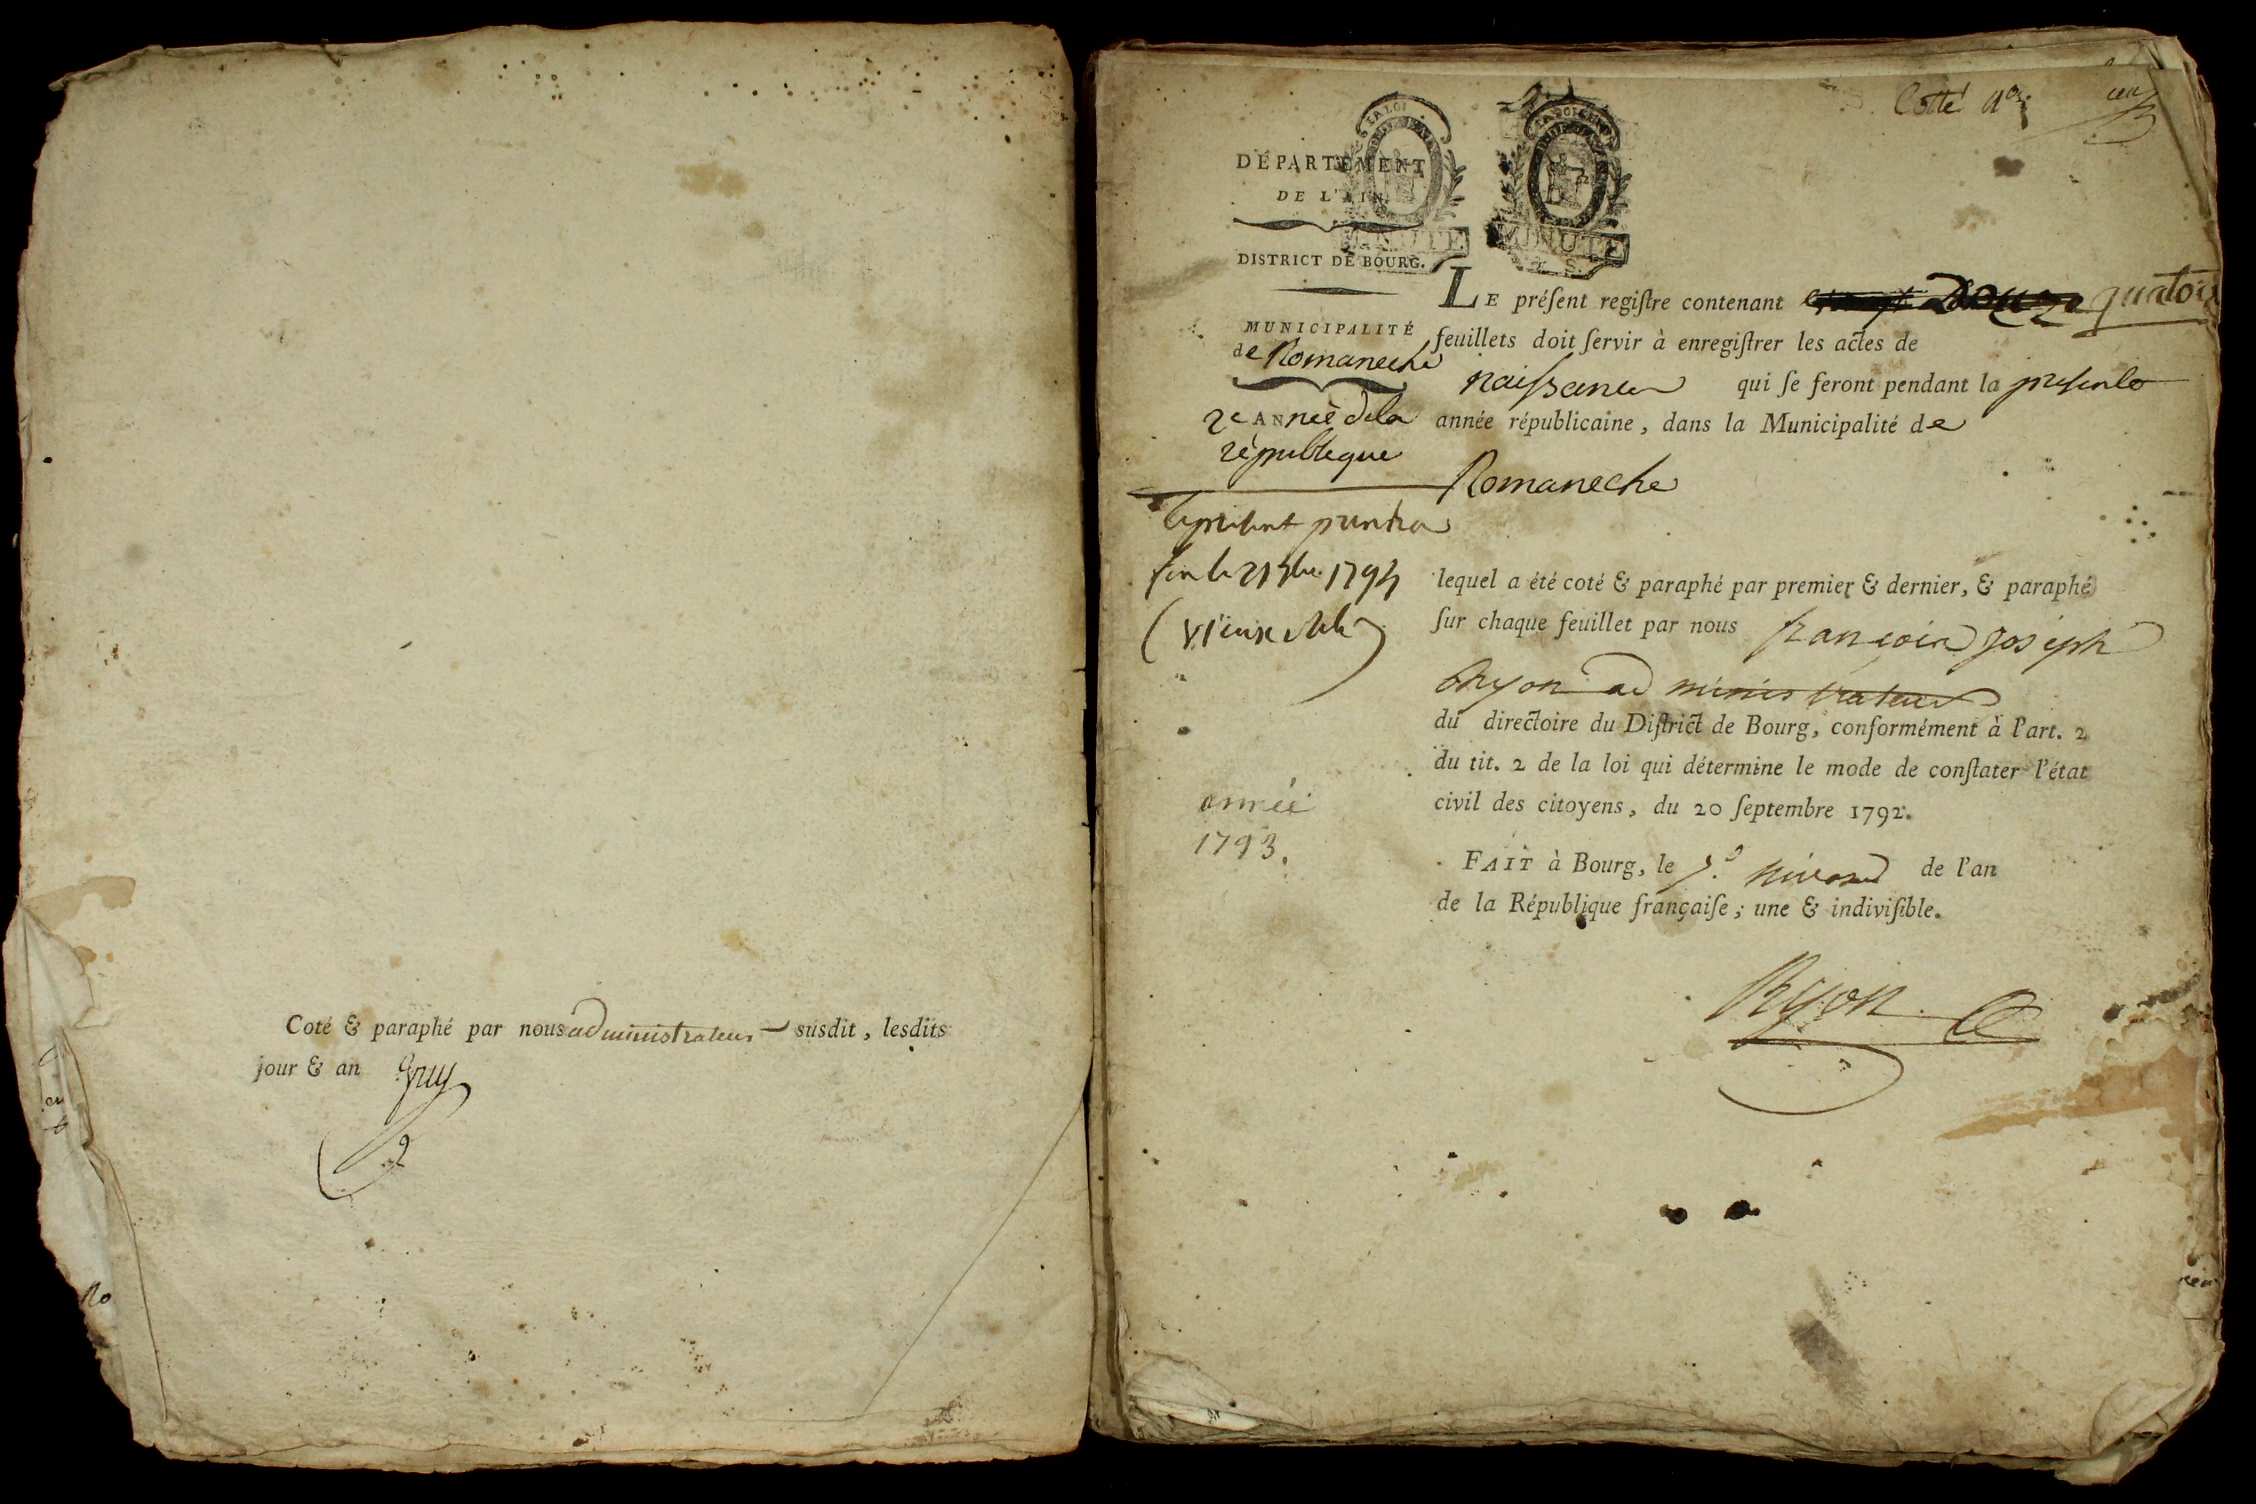 Coté & paraphé par nous administrateur susdit, lesdits
jour & an
Cotté
LA LOI
MINUTE
MINUTE
DÉPARTEMENT
DE L'AIN.
DISTRICT DE BOURG.
MUNICIPALITÉ
de Romaneche
2e ANnée de la
république
année
1793.
LE préſent regiſtre contenant quatorze
feuillets doit ſervir à enregiſtrer les actes de
naissance qui ſe feront pendant la presente
année républicaine, dans la Municipalité de
Romaneche
lequel a été coté & paraphé par premier & dernier, & paraphé
ſur chaque feuillet par nous françois joseph
administrateur
du directoire du Diſtrict de Bourg, conformément à l'art. 2
du tit. 2 de la loi qui détermine le mode de conſtater l'état
civil des citoyens, du 20 ſeptembre 1792.
FAIT à Bourg, le nivose de l'an
de la République françaiſe, une & indiviſible.